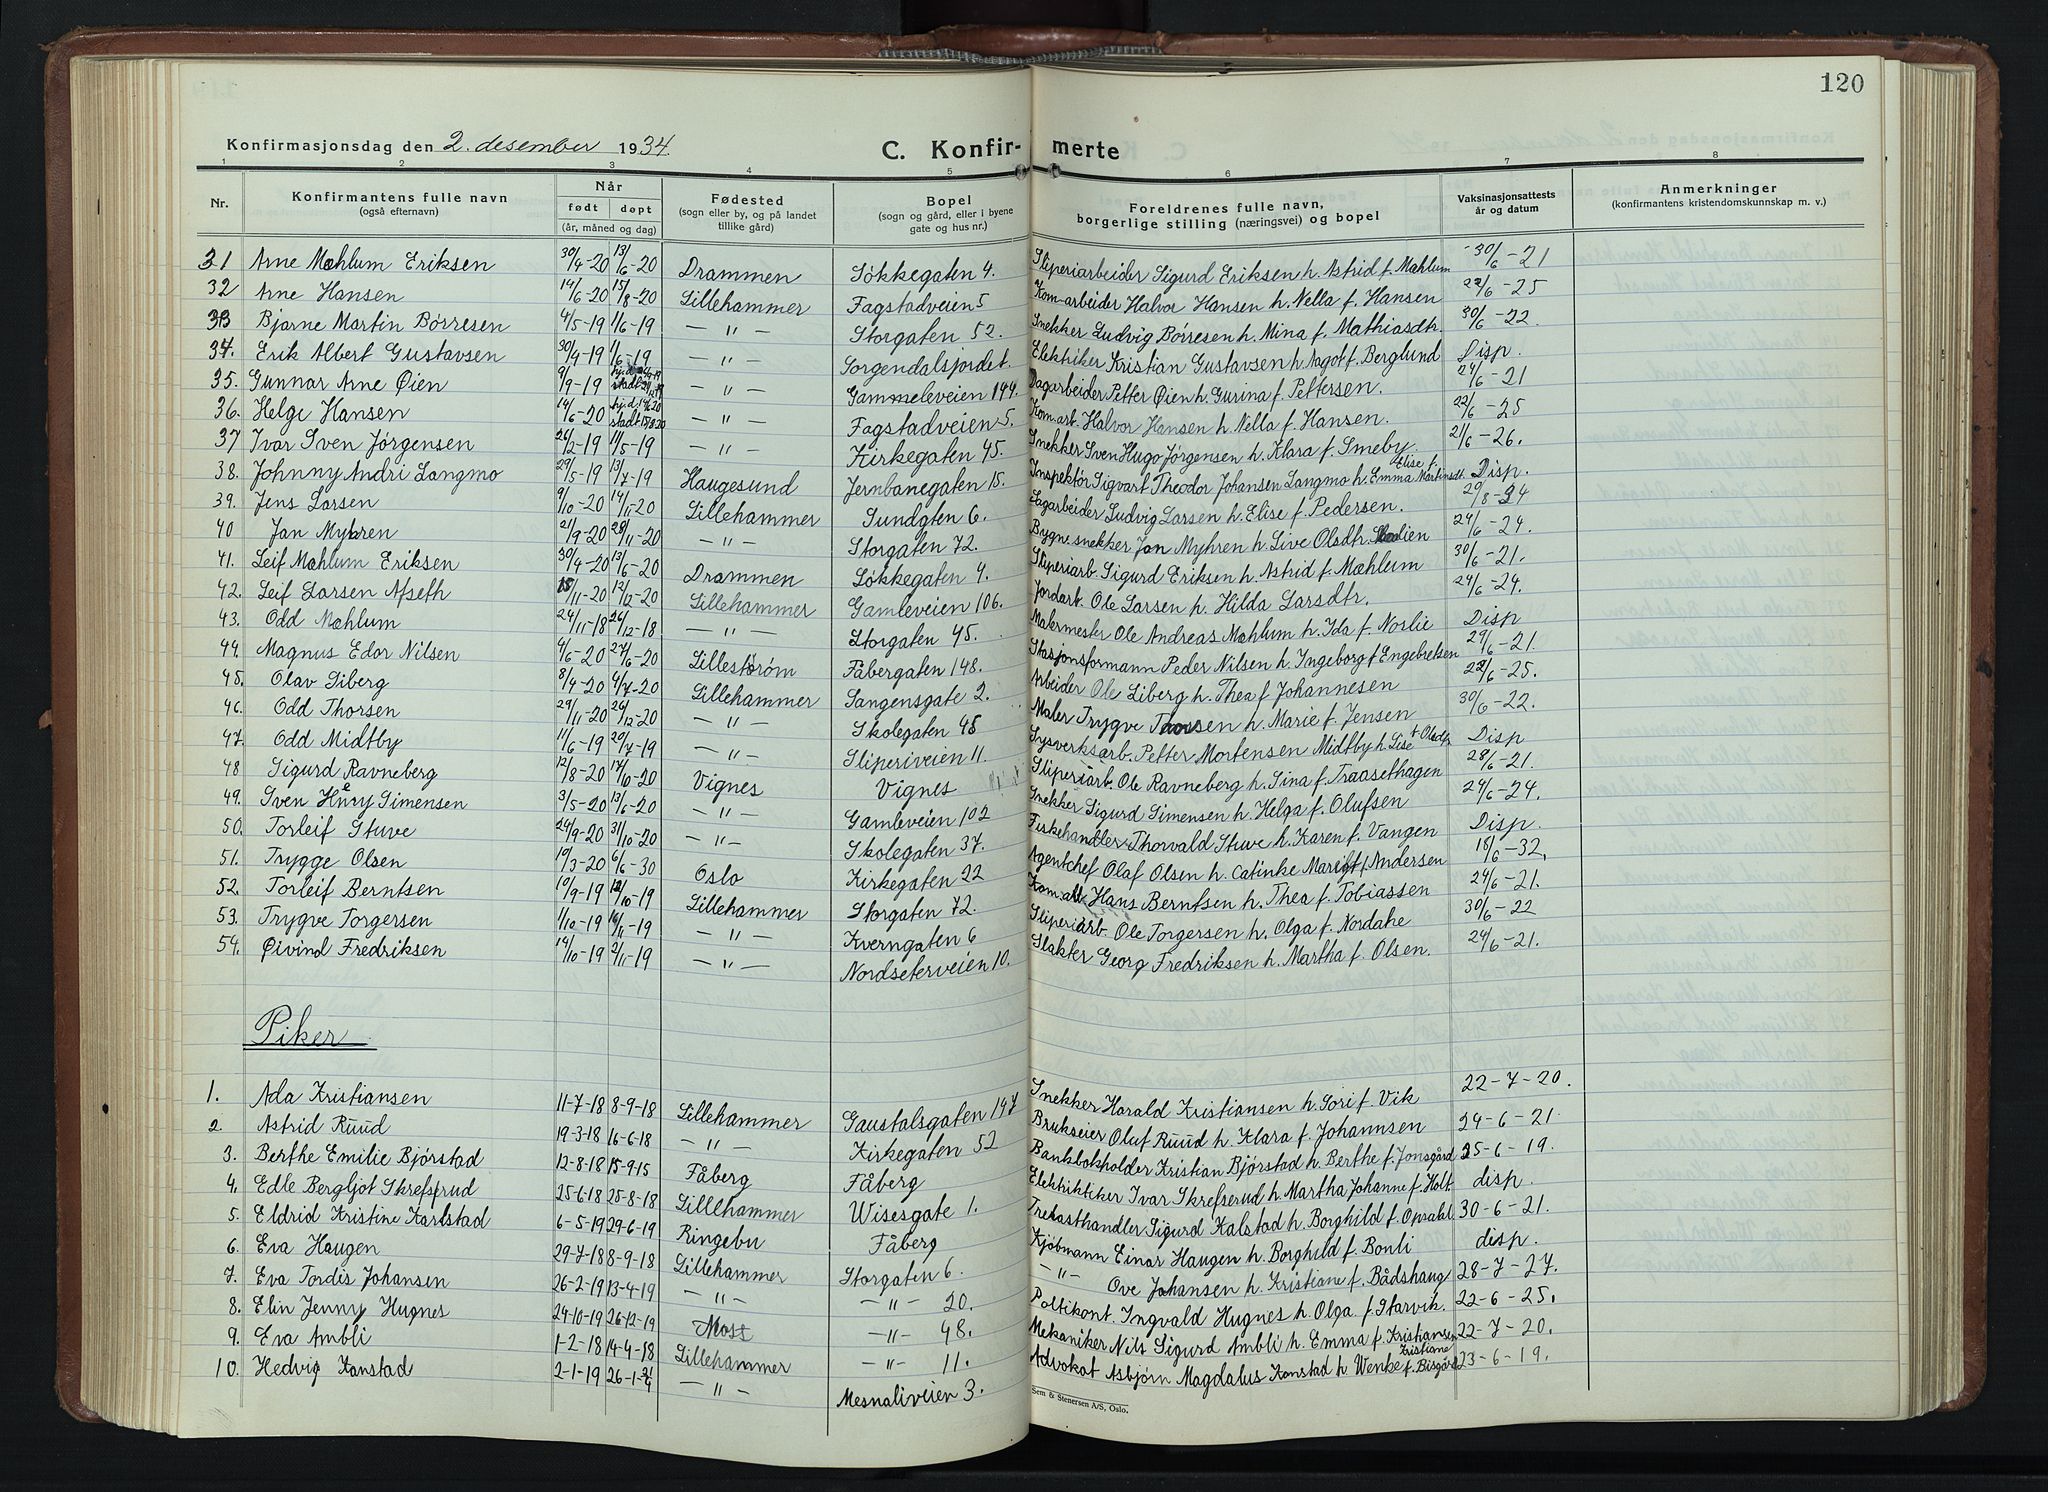 120
Konfirmasjonsdag den 2. desember 1934.
C. Konfir- merte
1 2 3 4 5 6 7 8
Nr. Konfirmantens fulle navn (også efternavn) Når født døpt (år, måned og dag) Fødested (sogn eller by, og på landet tillike gård) Bopel (sogn og gård, eller i byene gate og hus nr.) Foreldrenes fulle navn, borgerlige stilling (næringsvei) og bopel Vaksinasjonsattests år og datum Anmerkninger (konfirmantens kristendomskunnskap m. v.)
31 Arne Mæhlum Eriksen 30/4-20 13/6-20 Drammen Løkkegaten 4. Sliperiarbeider Sigurd Eriksen h. Astrid f. Mæhlum 30/6-21
32 Arne Hansen 14/6-20 15/8-20 Lillehammer Fagstadveien 5 Kom.arbeider Halvor Hansen h. Nella f. Hansen 22/6-25
33 Bjarne Martin Børresen 4/5-19 1/6-19 — " — Storgaten 52. Snekker Ludvig Børresen h. Mina f. Mathiasdtr. 30/6-22.
34. Erik Albert Gustavsen 30/4-19 1/6-19 — " — Sorgendalsjordet. Elektriker Kristian Gustavsen h. Nagot f. Berglund Disp.
35. Gunnar Arne Øien 9/9-19 — " — Gammeleveien 194. Dagarbeider Petter Øien h. Gurina f. Pettersen. 24/6-21
36. Helge Hansen 14/6-20 hj.d. 14/6 20 stadf. 15/8 20 — " — Fagstadveien 5. Kom.arb. Halvor Hansen h. Nella f. Hansen. 22/6-25
37 Ivar Sven Jørgensen 26/2-19 11/5-19 — " — Kirkegaten 45. Snekker Sven Hugo Jørgensen h. Klara f. Smeby. 21/6-26.
38. Johnny Andri Langmo 29/5-19 13/7-19 Haugesund Jernbanegaten 15. Inspektør Sigvart Theodor Johansen Langmo h. Emma Elise f. Martinsdt. Disp.
39. Jens Larsen 9/10-20 14/11-20 Lillehammer Sundgten 6. Sagarbeider Ludvig Larsen h. Elise f. Pedersen. 29/8-24
40 Jan Myhren 21/9-20 28/11-20 — " — Storgaten 72. Bygn. snekker Jan Myhren h. Live Olsdtr. 24/6-24.
41. Leif Mæhlum Eriksen 30/4-20 13/6-20 Drammen Løkkegaten 4. Sliperiarb. Sigurd Eriksen h. Astrid f. Mæhlum 30/6-21.
42. Leif Larsen Afseth 15/11-20 12/12-20 Lillehammer Gamleveien 106. Jordarb. Ole Larsen h. Hilda Larsdtr. 24/6-24.
43. Odd Mæhlum 24/11-18 26/12-18 — " — Storgaten 45. Malermester Ole Andreas Mæhlum h. Ida f. Noslie Disp
44. Magnus Edor Nilsen 4/6-20 27/6-20 Lillestrøm Fåbergaten 148. Stasjonsformann Peder Nilsen h. Ingeborg f. Engebretsen 29/6-21.
45. Olav Liberg 8/4-20 4/7-20 Lillehammer Langensgate 2. Arbeider Ole Liberg h. Thea f. Johannesen 22/6-25.
46. Odd Thorsen 29/11-20 26/12-20 — " — Skolegaten 45 Maler Trygve Thorsen h. Marie f. Jensen 30/6-22.
47. Odd Midtby 11/6-19 20/7-19 — " — Sliperiveien 11. Lysverksarb. Petter Mortensen Midtby h. Lise f. Olsdtr Disp
48 Sigurd Ravneberg 12/8-20 17/10-20 Vignes Vignes Sliperiarb. Ole Ravneberg h. Sina f. Traasethagen 28/6-21.
49. Sven Simensen 3/5-20 13/6-20 — " — Gamleveien 102 Snekker Sigurd Simensen h. Helga f. Olufsen 24/6-24.
50. Torleif Stuve 24/9-20 31/10-20 — " — Skolegaten 37. Fiskehandler Thorvald Stuve h. Karen f. Vangen Disp.
51. Trygge Olsen 19/3-20 6/6-30 Oslo Kirkegaten 22 Agentchef Olaf Olsen h. Catinke f. Andersen 18/6-32,
52. Torleif Berntsen 10/9-19 12/10-19 Lillehammer Storgaten 72. Kom.arb. Hans Berntsen h. Thea f. Tobiassen 24/6-21.
53. Trygve Torgersen 1/10-19 16/11-19 — " — Kverngaten 6 Sliperiarb. Ole Torgersen h. Olga f. Nordahe 30/6-22
54. Øivind Fredriksen 19/10-19 2/11-19 — " — Nordseterveien 10. Slakter Georg Fredriksen h. Martha f. Olsen. 24/6-21.
Piker
1. Ada Kristiansen 11-7-18 8-9-18 Lillehammer Gaustalsgaten 147 Snekker Harald Kristiansen h. Sori f. Vik 22-7-20.
2. Astrid Ruud 19-3-18 16-6-18 — " — Kirkegaten 52 Brukseier Oluf Ruud h. Klara f. Johannsen 24-6-21.
3. Berthe Emilie Bjørstad 12-8-18 15-9-15 Fåberg Fåberg Bankbokholder Kristian Bjørstad h. Berthe f. Jonsgård 25-6-19.
4. Edle Bergljot Skrefsrud 25-6-18 25-8-18 Lillehammer Wisesgate 1. Elektriktiker Ivar Skrefserud h. Martha Johanne f. Holt. disp.
5. Eldrid Kristine Karlstad 6-5-19 29-6-19 Ringebu Fåberg Trelasthandler Sigurd Kalstad h. Borghild f. Opsahl. 30-6-21.
6. Eva Haugen 29-7-18 8-9-18 Lillehammer Storgaten 6. Kjøbmann Einar Haugen h. Borghild f. Bonli disp.
7. Eva Tordis Johansen 26-2-19 13-4-19 — " — — " — 20. — " — Ove Johansen h. Kristiane f. Bådshaug 28-7-27.
8. Elin Jenny Hugnes 24-10-19 26-12-19 Moss — " — 48. Poltikont. Ingvald Hugnes h. Olga f. Starvik. 22-6-25.
9. Eva Ambli 1-2-18 14-4-18 Lillehammer — " — 11. Mekaniker Nils Sigurd Ambli h. Emma f. Kristiansen 22-7-20.
10. Hedvig Konstad 2-1-19 — " — Mesnaliveien 3. Advokat Asbjørn Magdalus Konstad h. Wenke Kristiane f. Bisgård 23-6-19.
Sem & Stenersen A/S, Oslo.